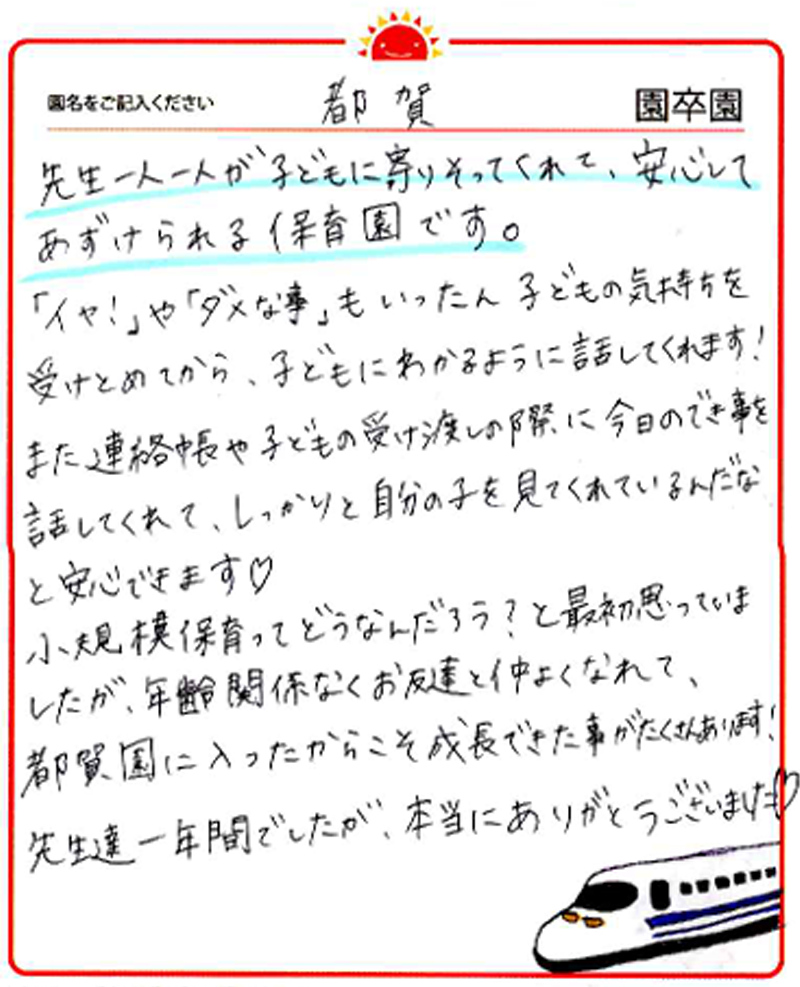 園名をご記入ください 都賀 園卒園
先生一人一人が子どもに寄りそってくれて、安心して
あずけられる保育園です。
「イヤ!」や「ダメな事」もいったん子どもの気持ちを
受けとめてから、子どもにわかるように話してくれます!
また連絡帳や子どもの受け渡しの際に今日のでき事を
話してくれて、しっかりと自分の子を見てくれているんだな
と安心できます♡
小規模保育ってどうなんだろう?と最初思っていま
したが、年齢関係なくお友達と仲よくなれて、
都賀園に入ったからこそ成長できた事がたくさんあります!
先生達一年間でしたが、本当にありがとうございました♡